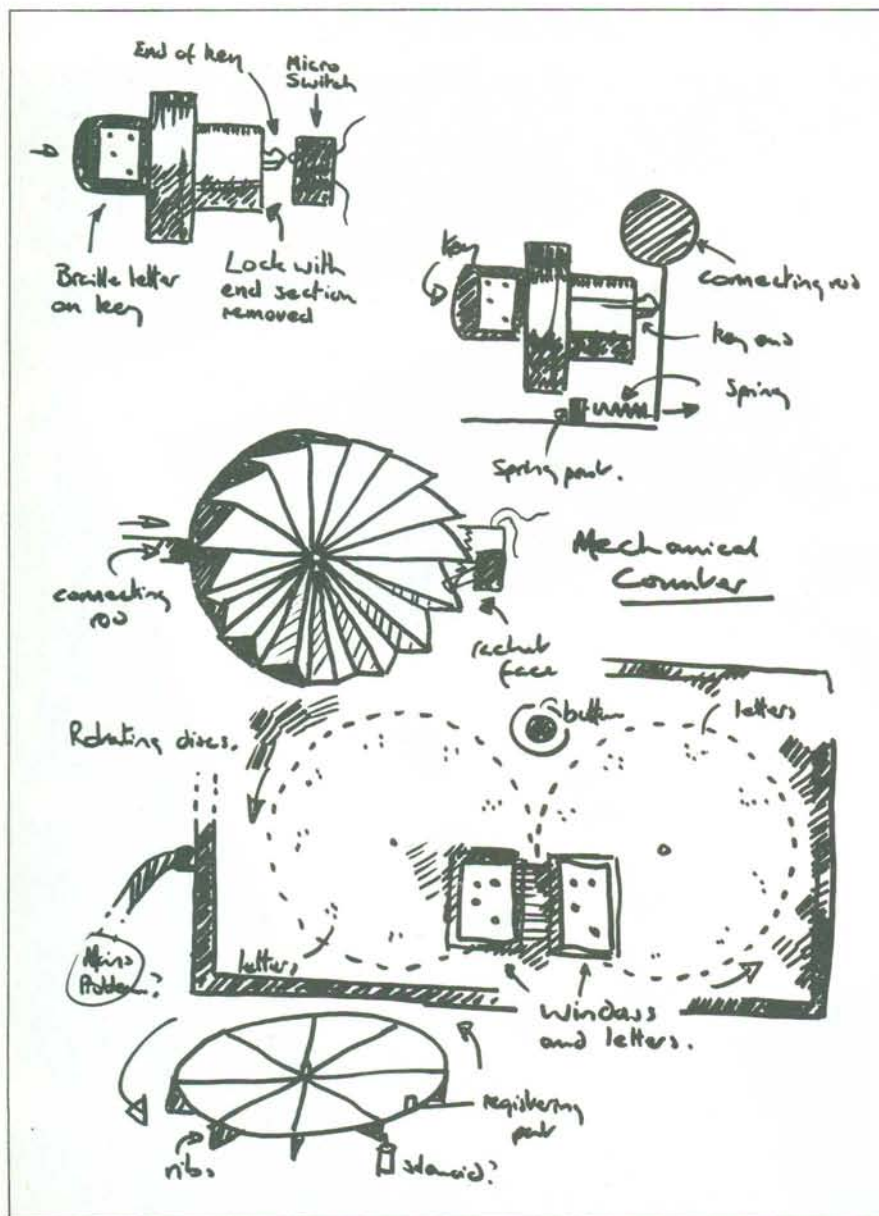 End of key
Micro
Switch
Braille letter
on key
Lock with
end section
removed
key
connecting rod
key end
Spring
Spring post.
Mechanical
Counter
connecting
rod
rachet
face
Rotating discs.
button
letters
letters
Mains
Problem?
Windows
and letters.
registering
post
ribs
solenoid?